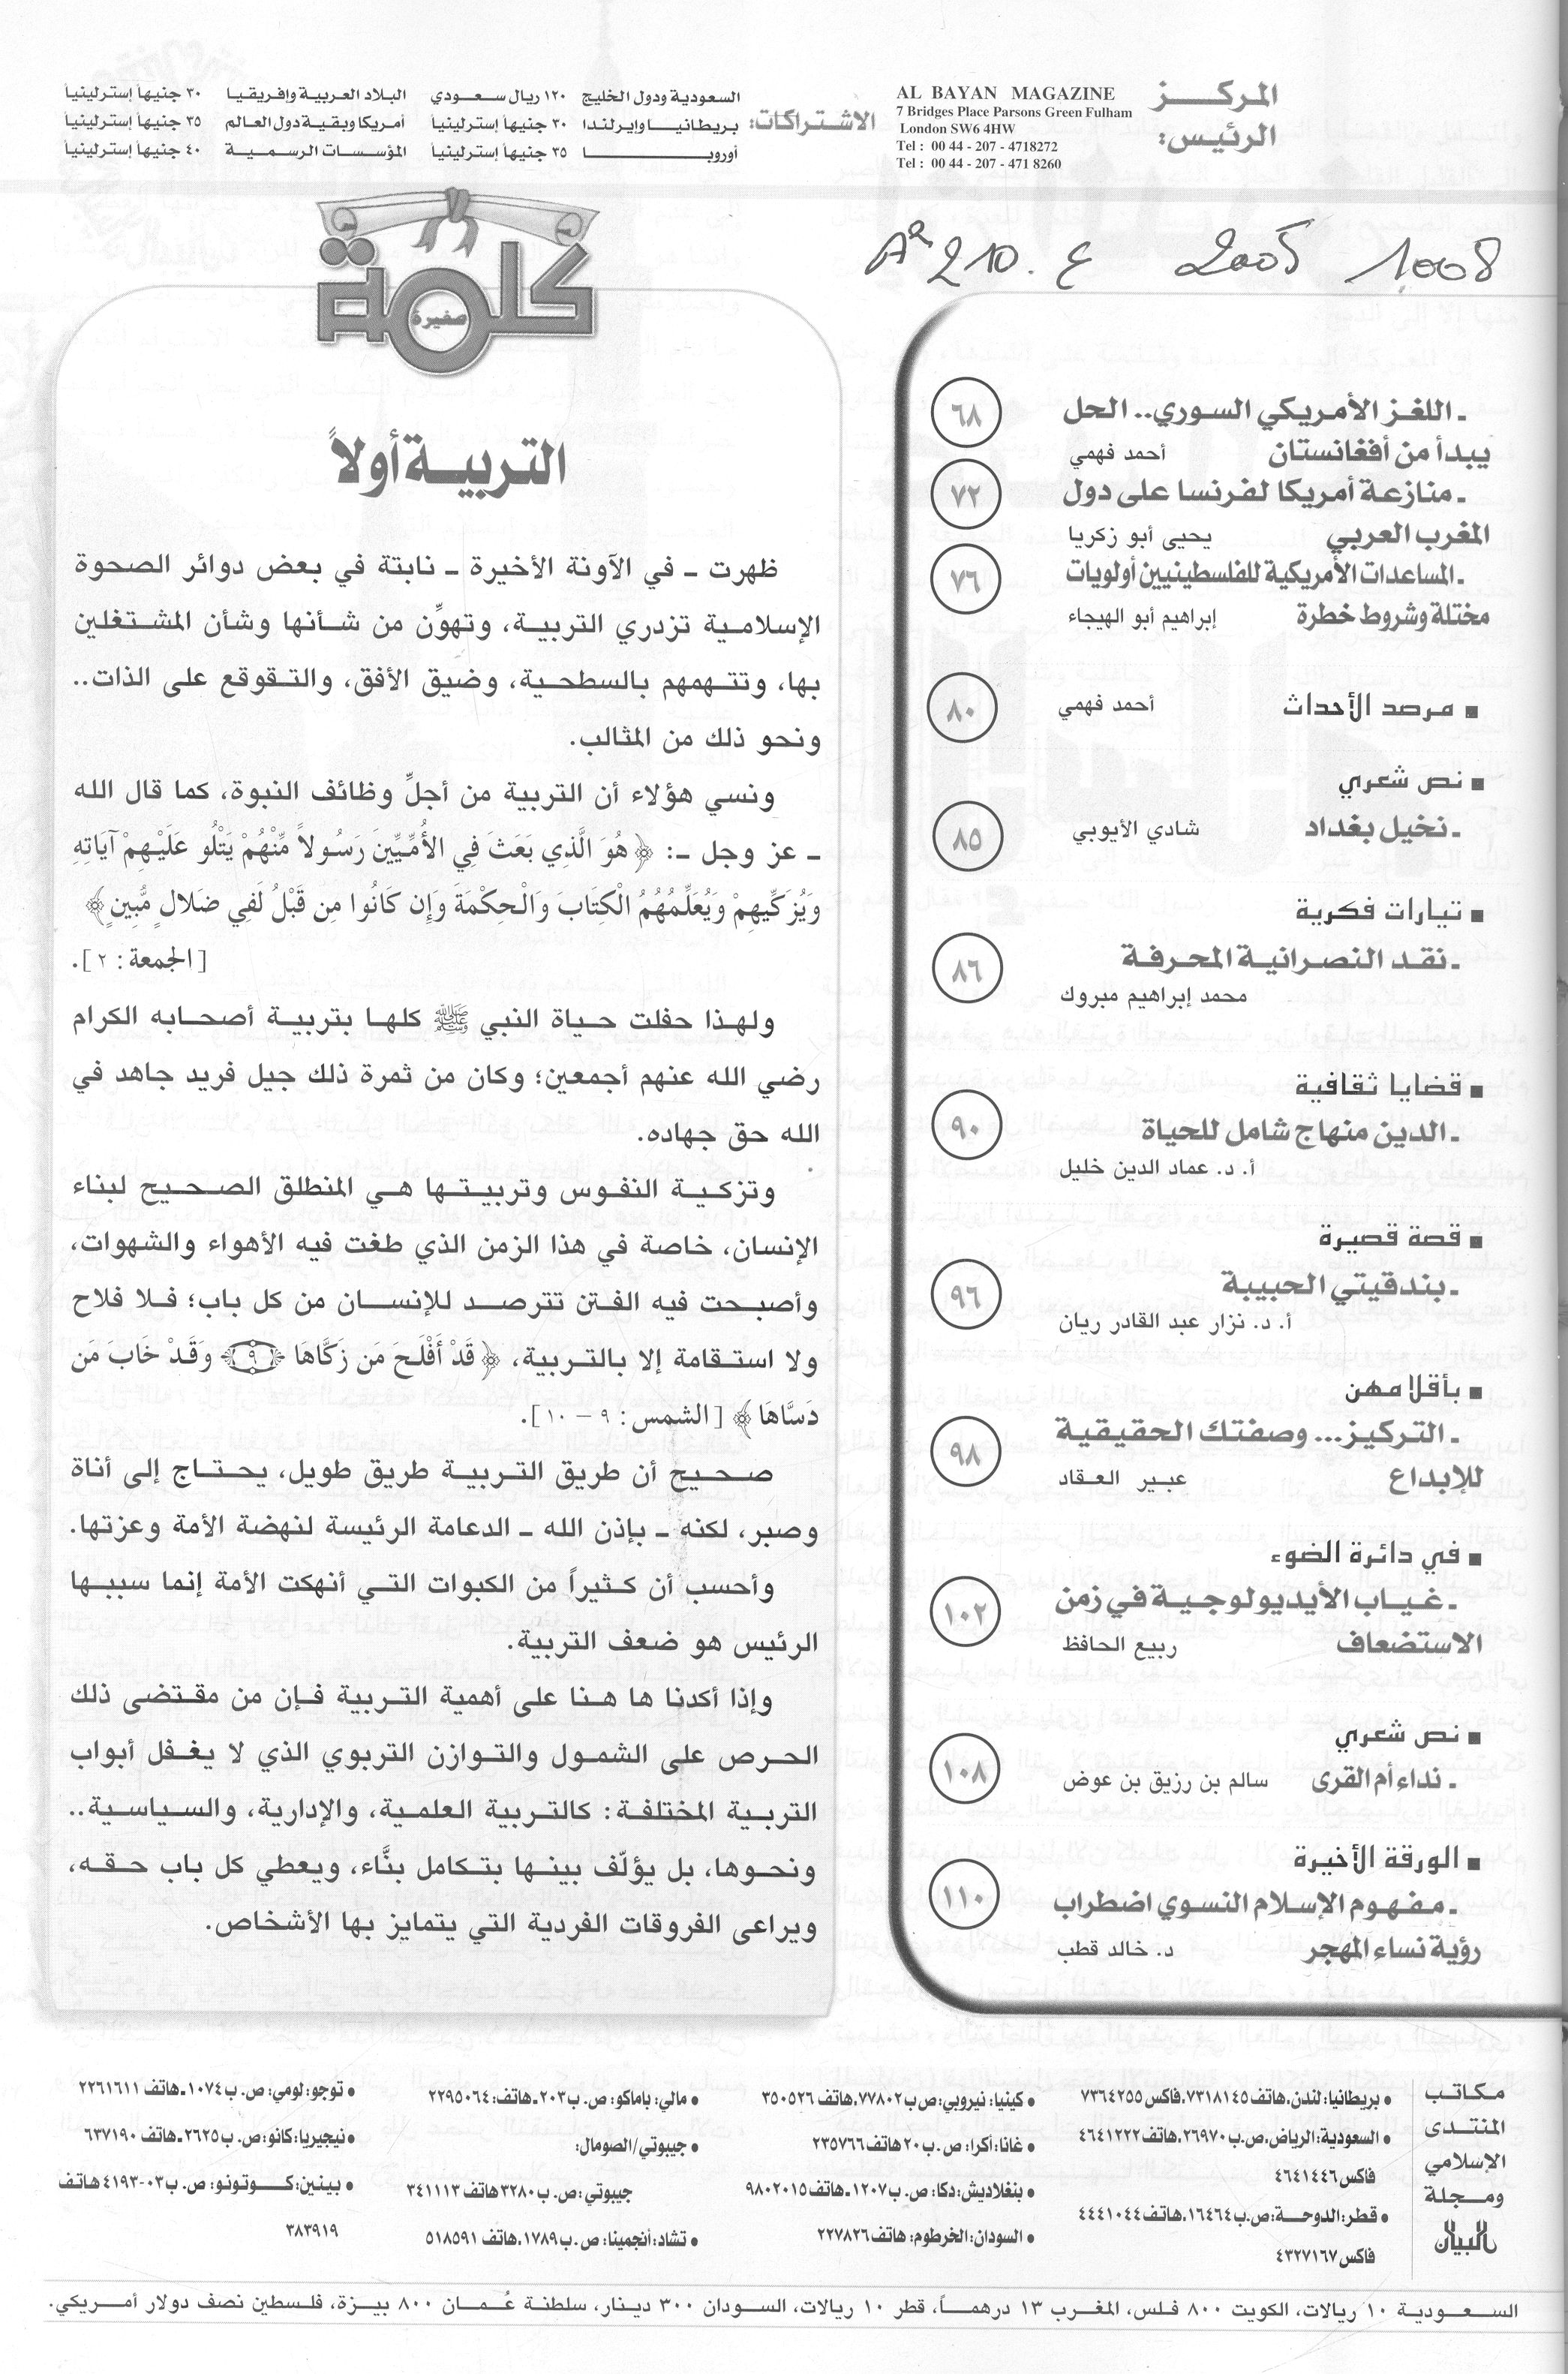 المركز
الرئيس:
AL BAYAN MAGAZINE
7 Bridges Place Parsons Green Fulham
London SW6 4HW
Tel : 00 44 - 207 - 4718272
Tel : 00 44 - 207 - 471 8260
الاشتراكات:
السعودية ودول الخليج ١٢٠ ريال سعودي البلاد العربية وإفريقيا ٣٠ جنيهاً إسترلينياً
بريطانيا وإيرلندا ٣٠ جنيهاً إسترلينياً أمريكا وبقية دول العالم ٣٥ جنيهاً إسترلينياً
أوروبا ٣٥ جنيهاً إسترلينياً المؤسسات الرسمية ٤٠ جنيهاً إسترلينياً
2005 1008
ـ اللغز الأمريكي السوري.. الحل ٦٨
يبدأ من أفغانستان أحمد فهمي
ـ منازعة أمريكا لفرنسا على دول ٧٢
المغرب العربي يحيى أبو زكريا
ـ المساعدات الأمريكية للفلسطينيين أولويات ٧٦
مختلة وشروط خطرة إبراهيم أبو الهيجاء
■ مرصد الأحداث أحمد فهمي ٨٠
■ نص شعري
ـ نخيل بغداد شادي الأيوبي ٨٥
■ تيارات فكرية
ـ نقد النصرانية المحرفة ٨٦
محمد إبراهيم مبروك
■ قضايا ثقافية
ـ الدين منهاج شامل للحياة ٩٠
أ. د. عماد الدين خليل
■ قصة قصيرة
ـ بندقيتي الحبيبة ٩٦
أ. د. نزار عبد القادر ريان
■ بأقلامهن
ـ التركيز... وصفتك الحقيقية ٩٨
للإبداع عبير العقاد
■ في دائرة الضوء
ـ غياب الأيديولوجية في زمن ١٠٢
الاستضعاف ربيع الحافظ
■ نص شعري
ـ نداء أم القرى سالم بن رزيق بن عوض ١٠٨
■ الورقة الأخيرة
ـ مفهوم الإسلام النسوي اضطراب ١١٠
رؤية نساء المهجر د. خالد قطب
كلمة
صغيرة
التربية أولاً
ظهرت ـ في الآونة الأخيرة ـ نابتة في بعض دوائر الصحوة
الإسلامية تزدري التربية، وتهوِّن من شأنها وشأن المشتغلين
بها، وتتهمهم بالسطحية، وضيق الأفق، والتقوقع على الذات..
ونحو ذلك من المثالب.
ونسي هؤلاء أن التربية من أجلِّ وظائف النبوة، كما قال الله
ـ عز وجل ـ: ﴿هُوَ الَّذِي بَعَثَ فِي الأُمِّيِّينَ رَسُولاً مِّنْهُمْ يَتْلُو عَلَيْهِمْ آيَاتِهِ
وَيُزَكِّيهِمْ وَيُعَلِّمُهُمُ الْكِتَابَ وَالْحِكْمَةَ وَإِن كَانُوا مِن قَبْلُ لَفِي ضَلالٍ مُّبِينٍ﴾
[الجمعة: ٢].
ولهذا حفلت حياة النبي ﷺ كلها بتربية أصحابه الكرام
رضي الله عنهم أجمعين؛ وكان من ثمرة ذلك جيل فريد جاهد في
الله حق جهاده.
وتزكية النفوس وتربيتها هي المنطلق الصحيح لبناء
الإنسان، خاصة في هذا الزمن الذي طغت فيه الأهواء والشهوات،
وأصبحت فيه الفتن تترصد للإنسان من كل باب؛ فلا فلاح
ولا استقامة إلا بالتربية، ﴿قَدْ أَفْلَحَ مَن زَكَّاهَا ﴿٩﴾ وَقَدْ خَابَ مَن
دَسَّاهَا﴾ [الشمس: ٩ - ١٠].
صحيح أن طريق التربية طريق طويل، يحتاج إلى أناة
وصبر، لكنه ـ بإذن الله ـ الدعامة الرئيسة لنهضة الأمة وعزتها.
وأحسب أن كثيراً من الكبوات التي أنهكت الأمة إنما سببها
الرئيس هو ضعف التربية.
وإذا أكدنا ها هنا على أهمية التربية فإن من مقتضى ذلك
الحرص على الشمول والتوازن التربوي الذي لا يغفل أبواب
التربية المختلفة: كالتربية العلمية، والإدارية، والسياسية..
ونحوها، بل يؤلّف بينها بتكامل بنَّاء، ويعطي كل باب حقه،
ويراعى الفروقات الفردية التي يتمايز بها الأشخاص.
مكاتب
المنتدى
الإسلامي
ومجلة
البيان
● بريطانيا: لندن. هاتف ٧٣١٨١٤٥. فاكس ٧٣٦٤٢٥٥
● السعودية: الرياض. ص. ب ٢٦٩٧٠. هاتف ٤٦٤١٢٢٢
فاكس ٤٦٤١٤٤٦
● قطر: الدوحة: ص. ب ١٦٤٦٤. هاتف ٤٤٤١٠٤٤
فاكس ٤٣٢٧١٦٧
● كينيا: نيروبي: ص ب ٧٧٨٠٢. هاتف ٣٥٠٥٢٦
● غانا: أكرا: ص. ب ٢٠ هاتف ٢٣٥٧٦٦
● بنغلاديش: دكا: ص. ب ١٢٠٧ ـ هاتف ٩٨٠٢٠١٥
● السودان: الخرطوم: هاتف ٢٢٧٨٢٦
● مالي: باماكو: ص. ب ٢٠٣ ـ هاتف: ٢٢٩٥٠٦٤
● جيبوتي/الصومال:
جيبوتي: ص. ب ٣٢٨٠ هاتف ٣٤١١١٣
● تشاد: أنجمينا: ص. ب ١٧٨٩. هاتف ٥١٨٥٩١
● توجو: لومي: ص. ب ١٠٧٤ ـ هاتف ٢٢٦١٦١١
● نيجيريا: كانو: ص. ب ٢٦٢٥ ـ هاتف ٦٣٧١٩٠
● بينين: كوتونو: ص. ب ٠٣-٤١٩٣ هاتف
٣٨٣٩١٩
السعودية ١٠ ريالات، الكويت ٨٠٠ فلس، المغرب ١٣ درهماً، قطر ١٠ ريالات، السودان ٣٠٠ دينار، سلطنة عُمان ٨٠٠ بيزة، فلسطين نصف دولار أمريكي.